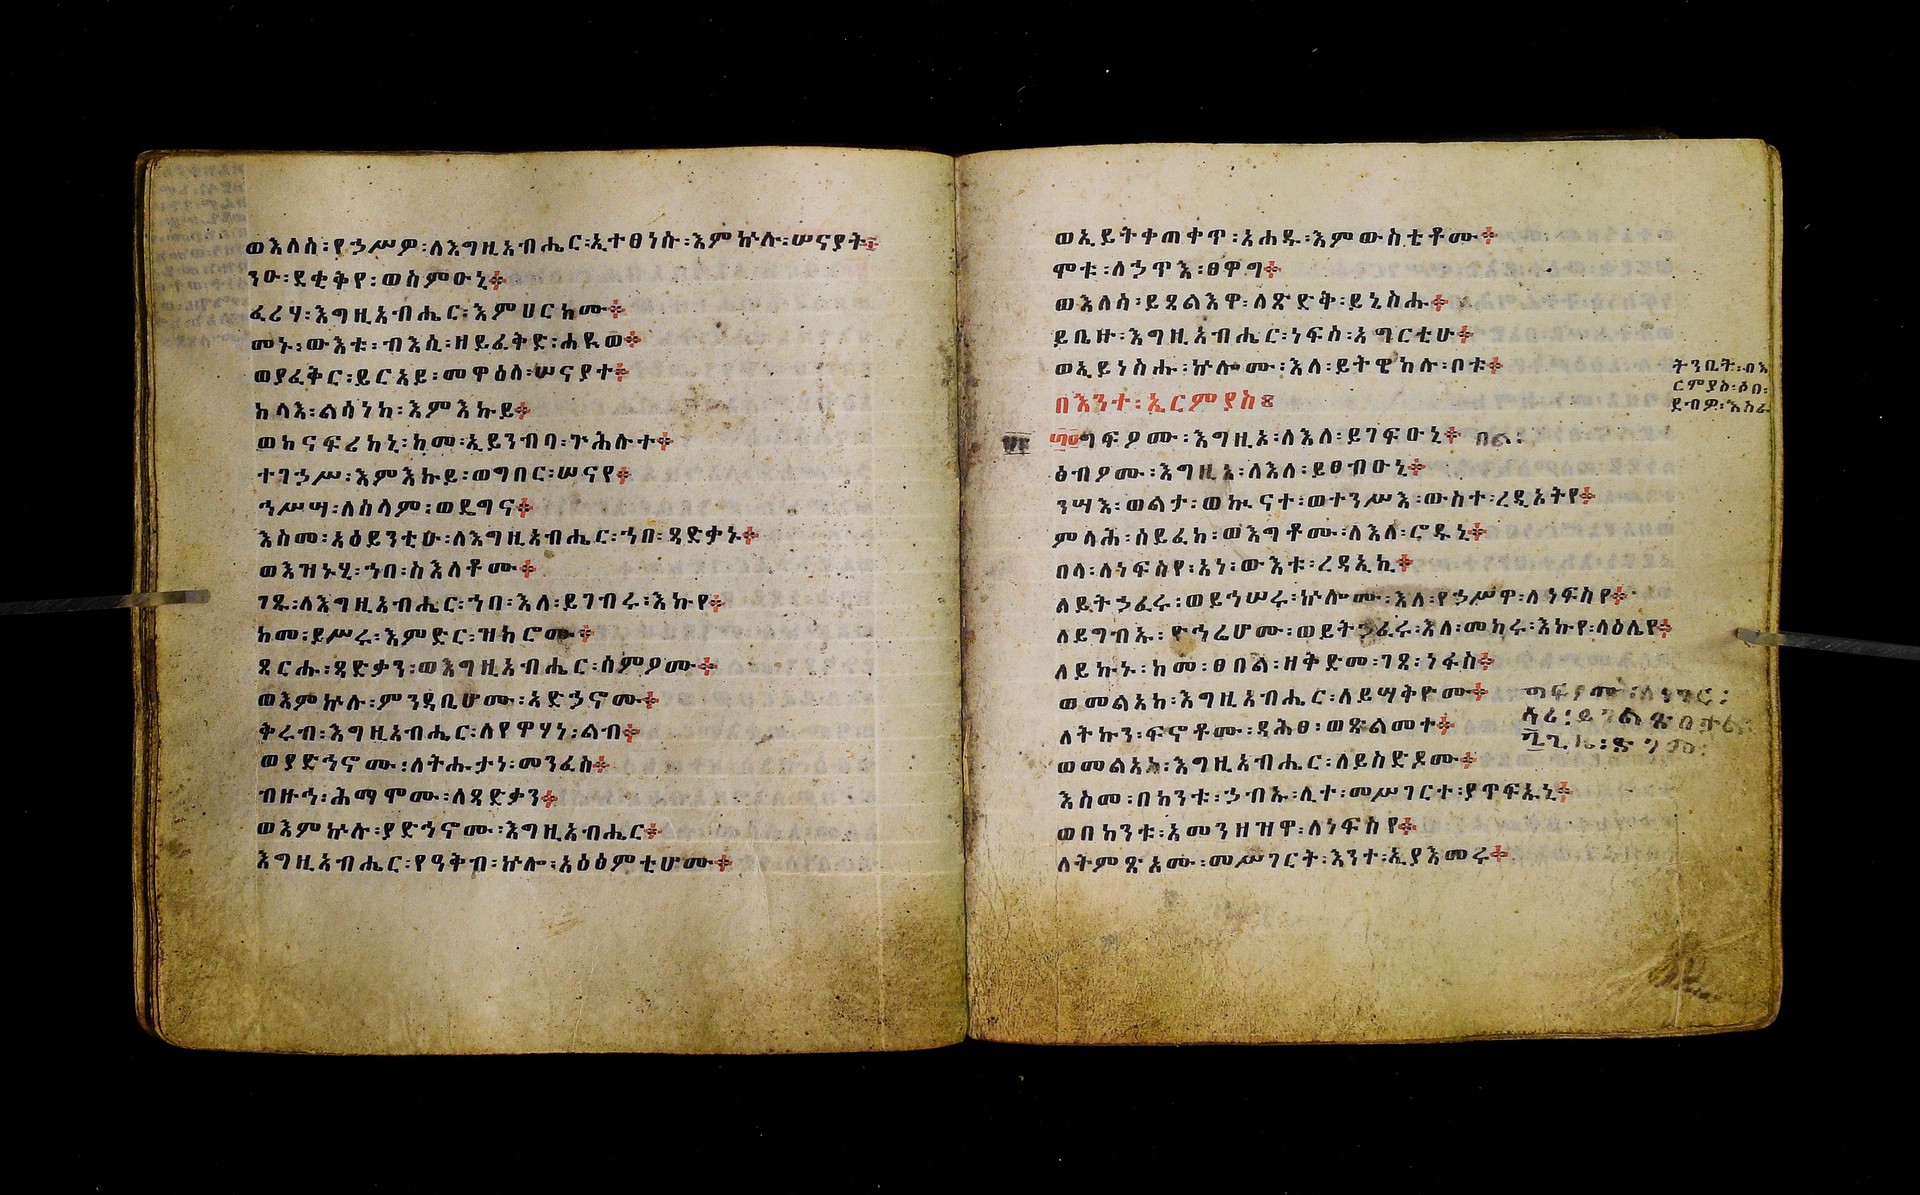 ወእለሰ፡የኃሥዎ፡ለእግዚአብሔር፡ኢተፀነሱ፡እምኵሉ፡ሠናያት፨
ንዑ፡ደቂቅየ፡ወስምዑኒ፨
ፈሪሃ፡እግዚአብሔር፡እምሀርክሙ፨
መኑ፡ውእቱ፡ብእሲ፡ዘይፈቅድ፡ሐዪወ፨
ወያፈቅር፡ይርአይ፡መዋዕለ፡ሠናያተ፨
ከላእ፡ልሳነከ፡እምእኩይ፨
ወከናፍሪከኒ፡ከመ፡ኢይንብባ፡ጕሕሉተ፨
ተገኃሥ፡እምእኩይ፡ወግበር፡ሠናየ፨
ኅሥሣ፡ለሰላም፡ወዴግና፨
እስመ፡አዕይንቲሁ፡ለእግዚአብሔር፡ኀበ፡ጻድቃኑ፨
ወእዝኑሂ፡ኀበ፡ስእለቶሙ፨
ገጹ፡ለእግዚአብሔር፡ኀበ፡እለ፡ይገብሩ፡እኩየ፨
ከመ፡ይሥሩ፡እምድር፡ዝክሮሙ፨
ጸርሑ፡ጻድቃን፡ወእግዚአብሔር፡ሰምዖሙ፨
ወእምኵሉ፡ምንዳቤሆሙ፡አድኃኖሙ፨
ቅሩብ፡እግዚአብሔር፡ለየዋሃነ፡ልብ፨
ወያድኅኖሙ፡ለትሑታነ፡መንፈስ፨
ብዙኅ፡ሕማሞሙ፡ለጻድቃን፨
ወእምኵሉ፡ያድኅኖሙ፡እግዚአብሔር፨
እግዚአብሔር፡የዓቅብ፡ኵሎ፡አዕፅምቲሆሙ፨
ወኢይትቀጠቀጥ፡አሐዱ፡እምውስቴቶሙ፨
ሞቱ፡ለኃጥእ፡ፀዋግ፨
ወእለሰ፡ይጸልእዋ፡ለጽድቅ፡ይኔስሑ፨
ይቤዙ፡እግዚአብሔር፡ነፍስ፡አግርቲሁ፨
ወኢይነስሑ፡ኵሎሙ፡እለ፡ይትዌከሉ፡ቦቱ፨
ትንቢት፡በእ
ርምያስ፡ዕበ፡
ደብዎ፡እስራ
በእንተ፡ኤርምያስ፤
ግፍዖሙ፡እግዚኦ፡ለእለ፡ይገፍዑኒ፨ በል፡
ፅብዖሙ፡እግዚኦ፡ለእለ፡ይፀብዑኒ፨
ንሣእ፡ወልታ፡ወኲናተ፡ወተንሥእ፡ውስተ፡ረዲኦትየ፨
ምላሕ፡ሰይፈከ፡ወእግቶሙ፡ለእለ፡ሮዱኒ፨
በላ፡ለነፍስየ፡አነ፡ውእቱ፡ረዳኢኪ፨
ለይትኃፈሩ፡ወይኅሠሩ፡ኵሎሙ፡እለ፡የኃሥዋ፡ለነፍስየ፨
ለይግብኡ፡ድኅሬሆሙ፡ወይትኃፈሩ፡እለ፡መከሩ፡እኩየ፡ላዕሌየ፨
ለይኩኑ፡ከመ፡ፀበል፡ዘቅድመ፡ገጸ፡ነፋስ፨
ወመልአከ፡እግዚአብሔር፡ለይሣቅዮሙ፨
ለትኩን፡ፍኖቶሙ፡ዳሕፀ፡ወጽልመተ፨
ወመልአከ፡እግዚአብሔር፡ለይስድዶሙ፨
እስመ፡በከንቱ፡ኃብኡ፡ሊተ፡መሥገርተ፡ያጥፍኡኒ፨
ወበከንቱ፡አመንዘዝዋ፡ለነፍስየ፨
ለትምጽኦሙ፡መሥገርት፡እንተ፡ኢያእመሩ፨